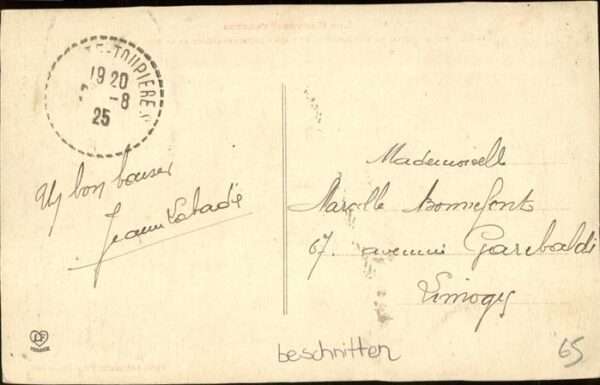 TOUPIERE
19 20
-8
25
Un bon baiser
Jeanne Labadie
Mademoiselle
Marcelle Bonnefont
67. avenue Garibaldi
Limoges
beschnitten
65